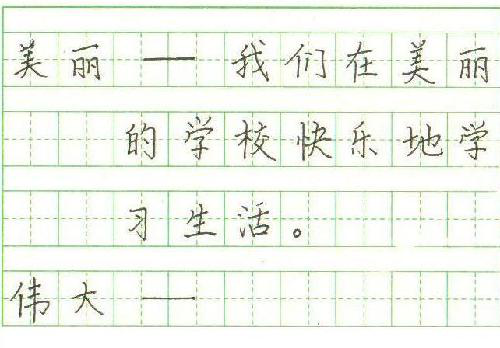 美丽——我们在美丽
的学校快乐地学
习生活。
伟大——